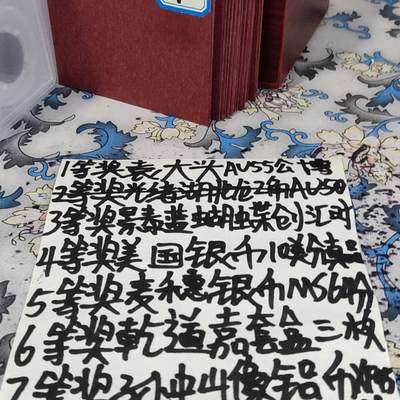 1等奖袁大头AU55公博
2等奖光绪湖北龙2角AU50
3等奖景泰蓝
4等奖美国银币10美分真品
5等奖麦穗银币MS60分
6等奖乾道嘉套盒三板
7等奖孙中山像铝币